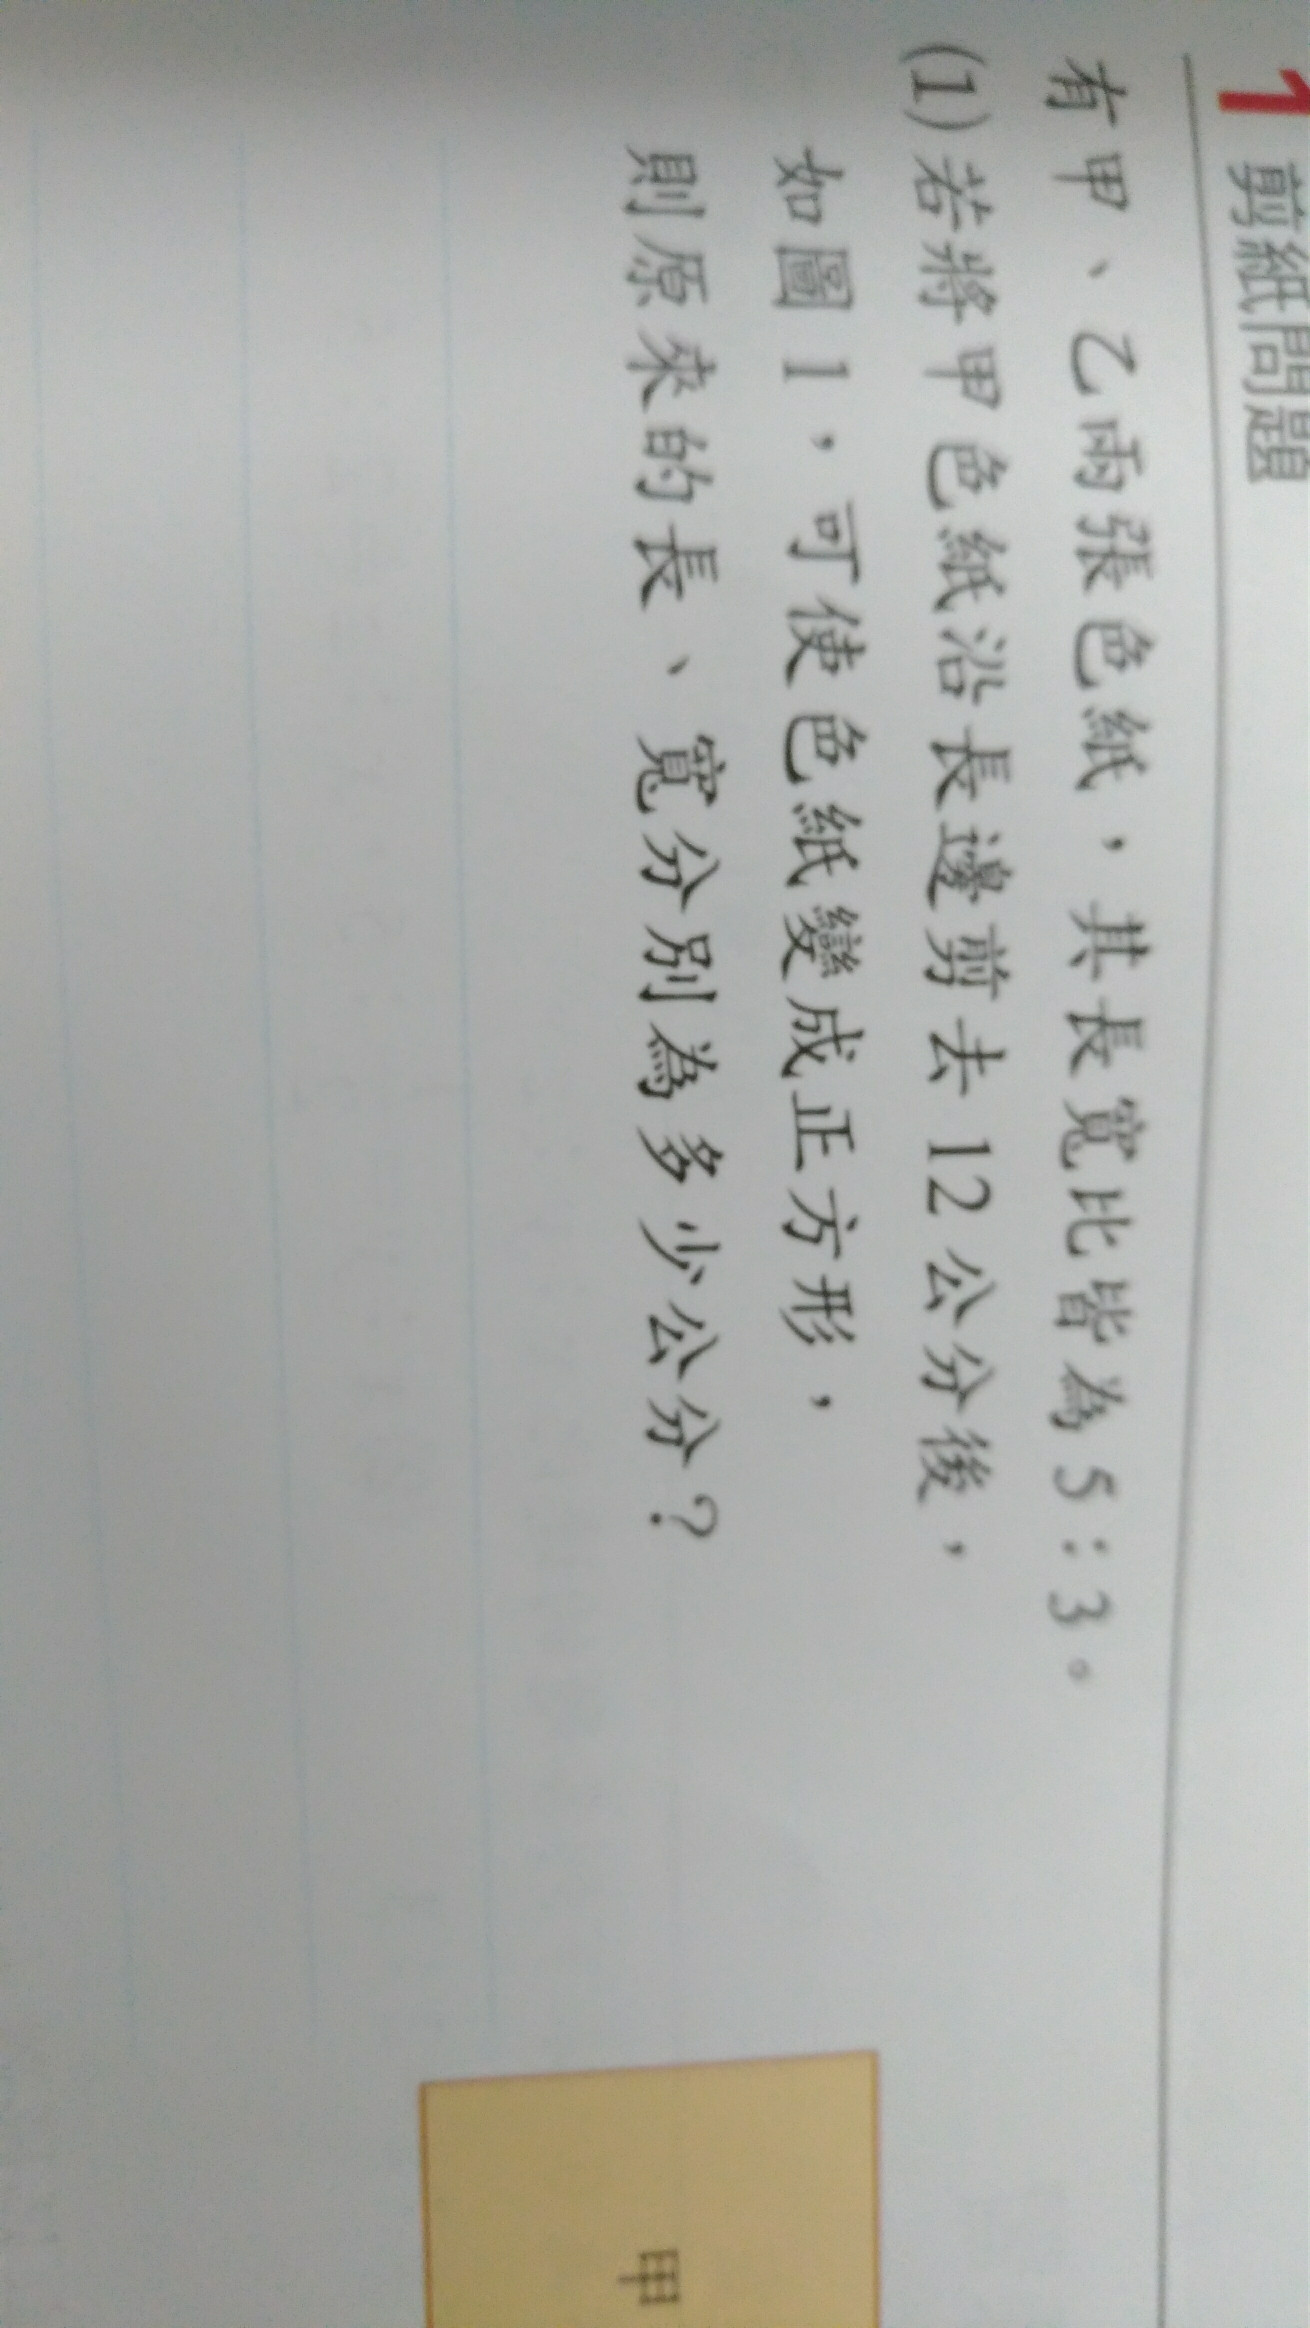 1 剪紙問題
有甲、乙兩張色紙，其長寬比皆為 5：3。
(1)若將甲色紙沿長邊剪去 12 公分後，
如圖 1，可使色紙變成正方形，
則原來的長、寬分別為多少公分？
甲